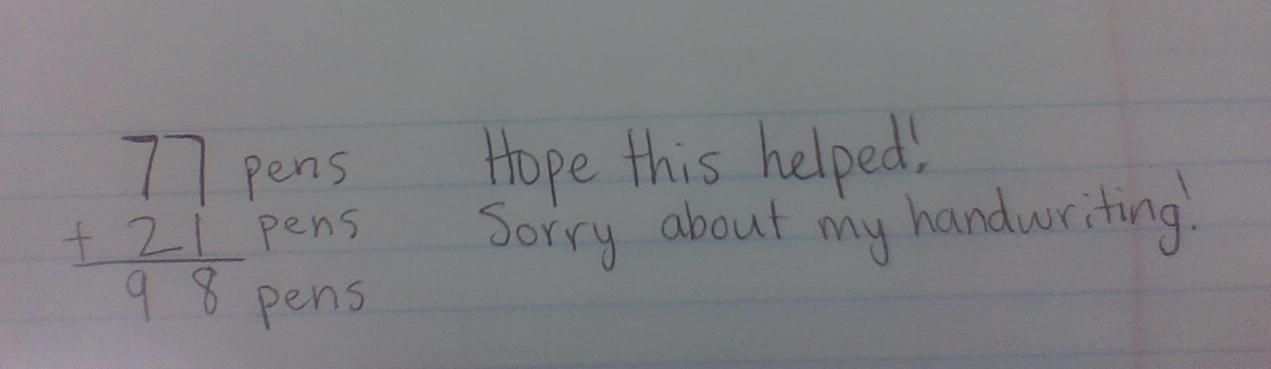 77 pens
+ 21 pens
98 pens
Hope this helped!
Sorry about my handwriting!